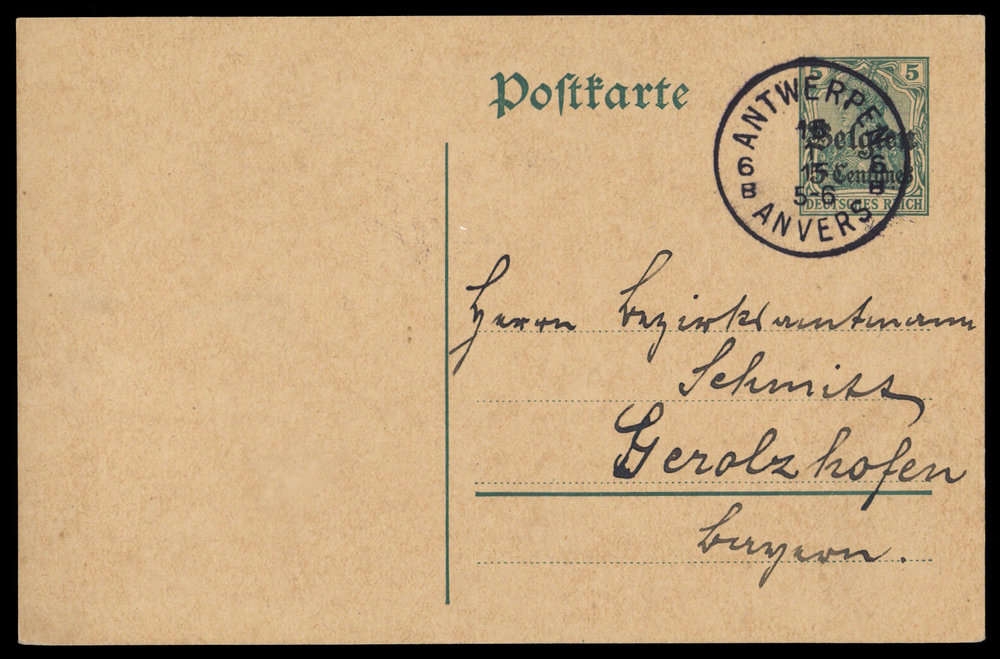 Poſtkarte
5 5
Belgien
5 Centimes
DEUTSCHES REICH
ANTWERPEN
1
15
5-6
6 6
B B
ANVERS
Herrn Bezirksamtmann
Schmitt
Gerolzhofen
Bayern.